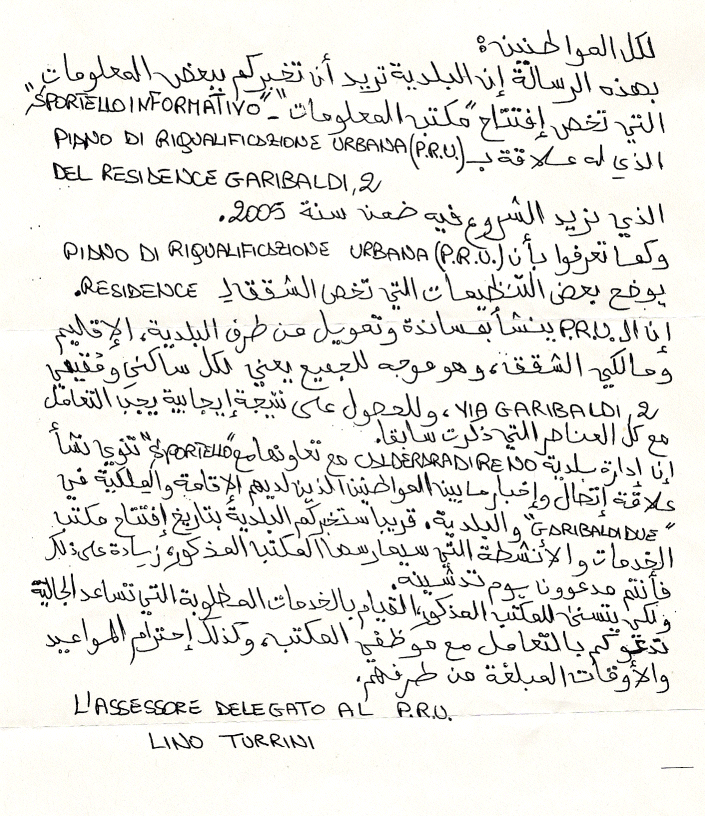 لكل المواطنين:
بهذه الرسالة إن البلدية تريد أن تخبركم ببعض المعلومات
التي تخص إفتتاح "مكتب المعلومات" - "SPORTELLO INFORMATIVO"
الذي له علاقة بـ PIANO DI RIQUALIFICAZIONE URBANA (P.R.U.)
DEL RESIDENCE GARIBALDI, 2
الذي نريد الشروع فيه ضمن سنة 2005.
وكما تعرفوا بأن PIANO DI RIQUALIFICAZIONE URBANA (P.R.U.)
يوضع بعض التنظيمات التي تخص الشقق لـ RESIDENCE.
إن الـ P.R.U. ينشأ بمساندة وتمويل من طرف البلدية، الإقليم
ومالكي الشقق، وهو موجه للجميع يعني لكل ساكني ومقيمي
VIA GARIBALDI, 2، وللحصول على نتيجة إيجابية يجب التعامل
مع كل العناصر التي ذكرت سابقا.
إن إدارة بلدية CALDERARA DI RENO مع تعاونها مع "SPORTELLO" تنوي نشأ
علاقة إتصال وإخبار ما بين المواطنين الذين لديهم الإقامة والملكية في
"GARIBALDI DUE" والبلدية. قريبا ستخبركم البلدية بتاريخ إفتتاح مكتب
الخدمات والأنشطة التي سيمارسها المكتب المذكور، زيادة على ذلك
فأنتم مدعوون يوم تدشينه.
ولكي يتسنى للمكتب المذكور القيام بالخدمات المطلوبة التي تساعد الجالية
تدعوكم بالتعامل مع موظفي المكتب، وكذلك إحترام المواعيد
والأوقات المبلغة من طرفهم.
L'ASSESSORE DELEGATO AL P.R.U.
LINO TURRINI